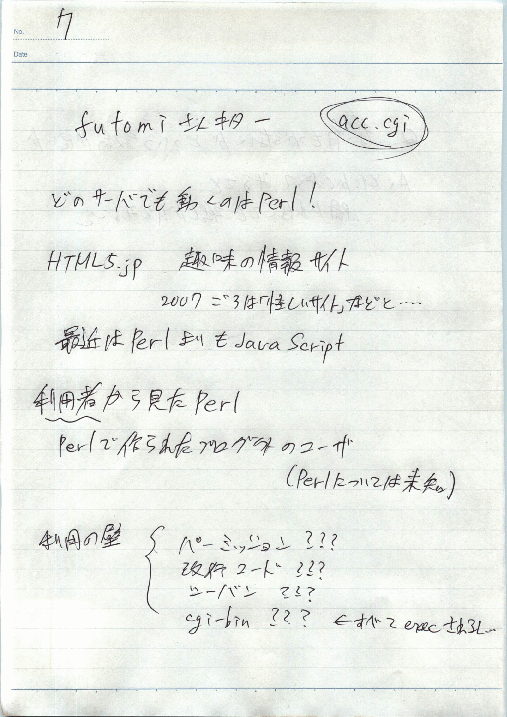 No. 7
Date
futomiさんキター acc.cgi
どのサーバでも動くのはPerl!
HTML5.jp 趣味の情報サイト
2007ごろは「怪しいサイト」などと‥‥
最近はPerlよりもJavaScript
利用者から見たPerl
Perlで作られたプログラムのユーザ
(Perlについては未知)
利用の壁
パーミッション ???
改行コード ???
シーバン ???
cgi-bin ??? ←すべてexecされるし…